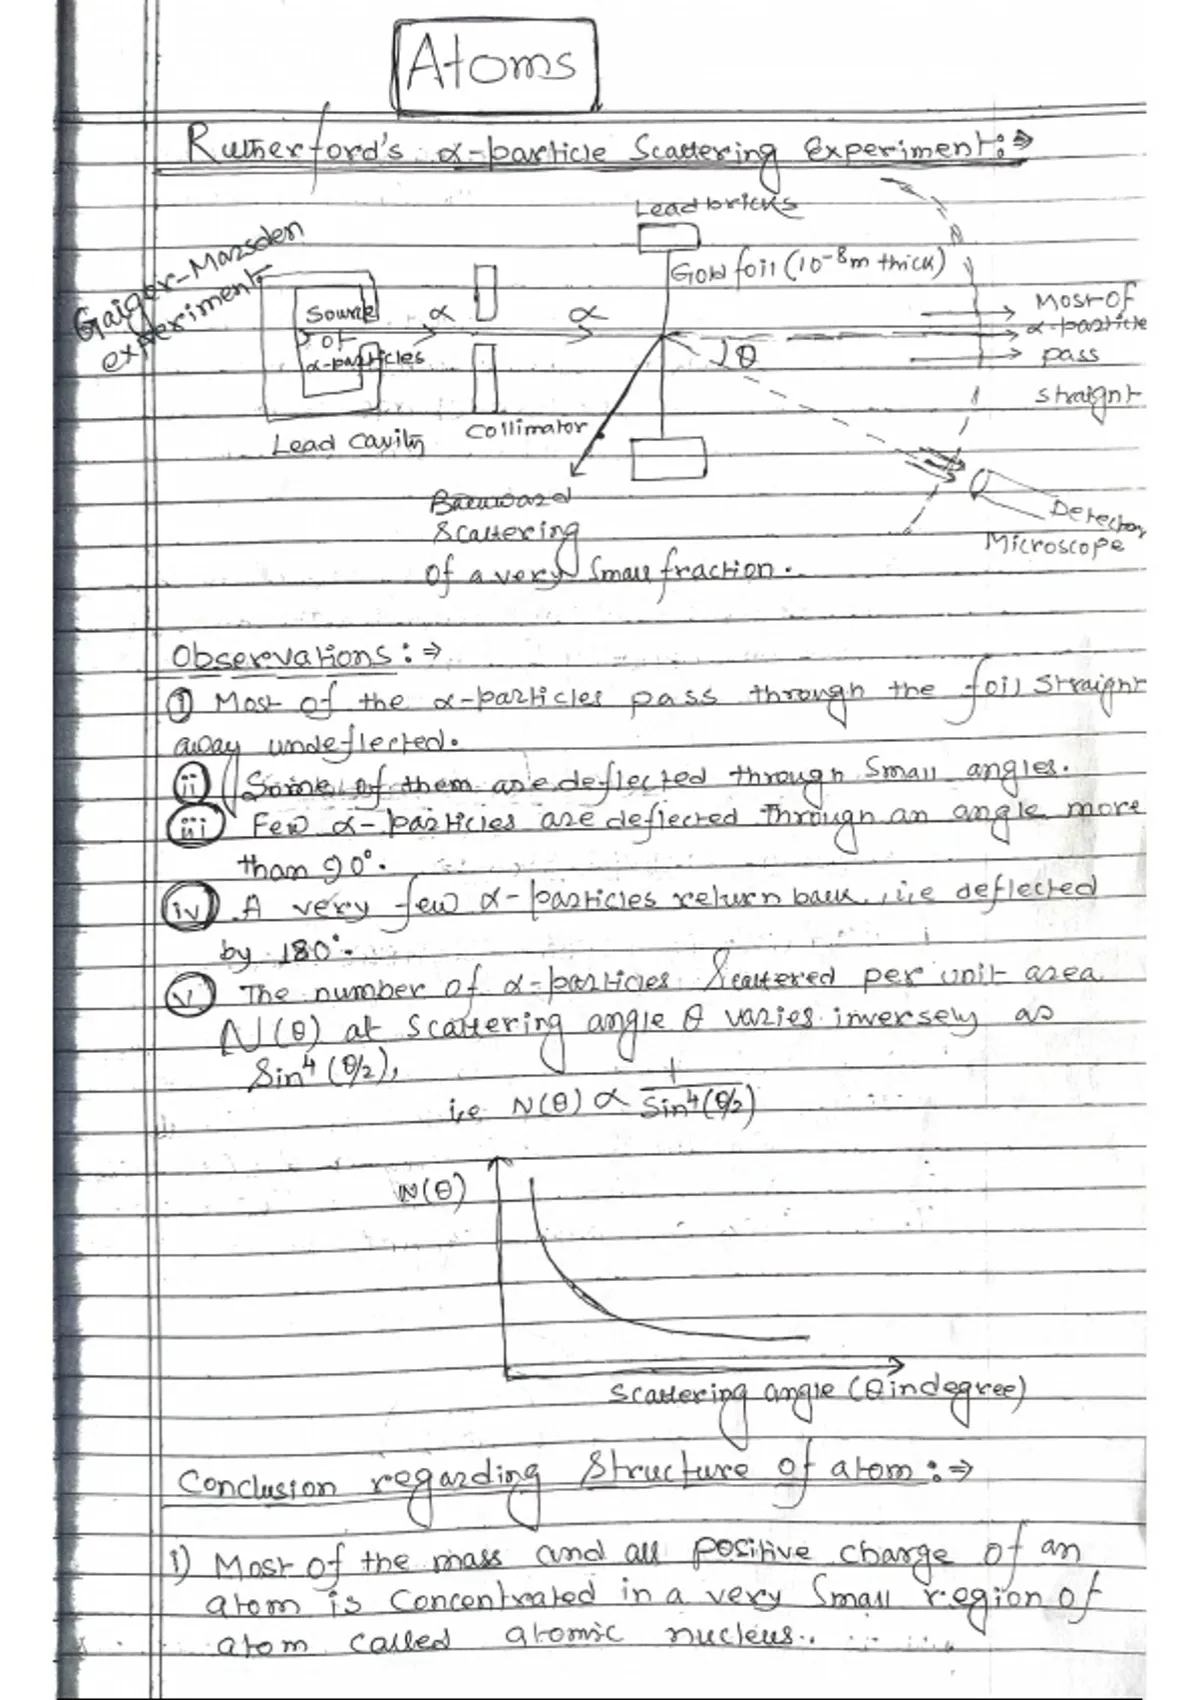 Atoms
Rutherford's α-particle Scattering Experiment:⇒
Gaiger-Marsden
experiment
Lead bricks
Gold foil (10⁻⁸m thick)
Source
of
α-particles
α
α
θ
Most of
α-particle
pass
straight
Lead cavity
Collimator
Backward
Scattering
of a very small fraction.
Detector
Microscope
Observations:⇒
(i) Most of the α-particles pass through the foil straight
away undeflected.
(ii) Some of them are deflected through small angles.
(iii) Few α-particles are deflected through an angle more
than 90°.
(iv) A very few α-particles return back, i.e deflected
by 180°.
(v) The number of α-particles scattered per unit area
N(θ) at scattering angle θ varies inversely as
Sin⁴(θ/2),
i.e N(θ) ∝ 1/Sin⁴(θ/2)
N(θ)
Scattering angle (θ in degree)
Conclusion regarding Structure of atom:⇒
i) Most of the mass and all positive charge of an
atom is concentrated in a very small region of
atom called atomic nucleus..